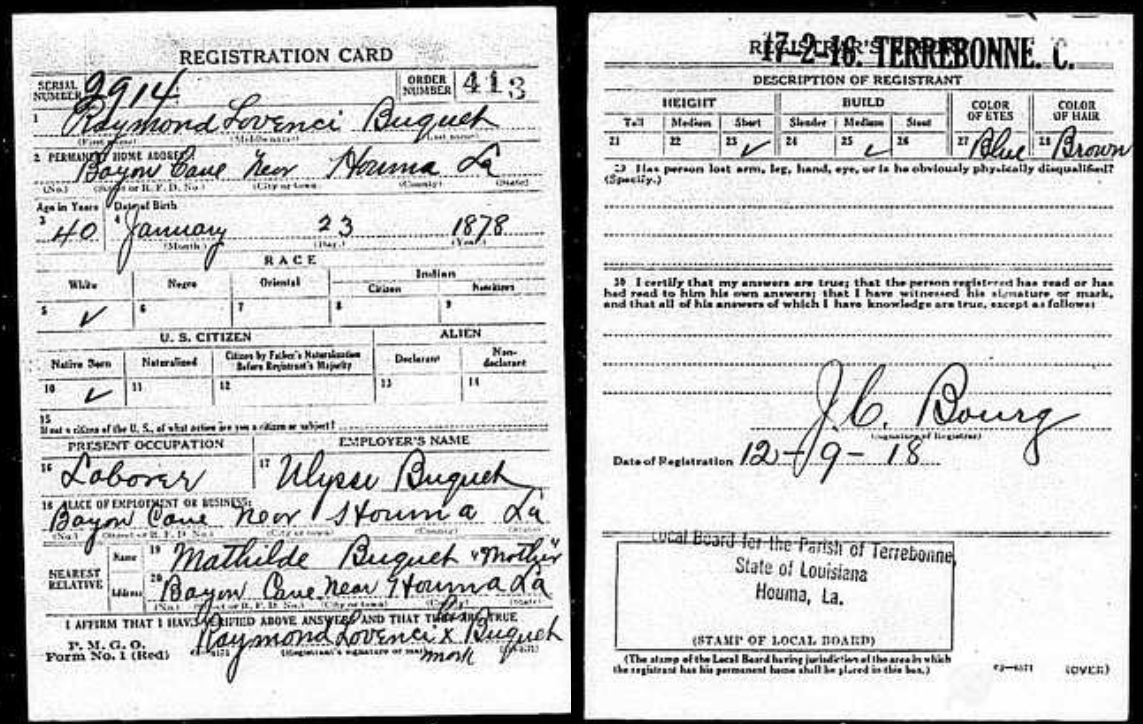 REGISTRATION CARD
SERIAL NUMBER 2914
ORDER NUMBER 413
1 Raymond Lovenci Buquet
(First name) (Middle name) (Last name)
2 PERMANENT HOME ADDRESS:
Bayou Cane Near Houma La
(No.) (Street or R. F. D. No.) (City or town) (County) (State)
Age in Years Date of Birth
3 40 4 January 23 1878
(Month.) (Day.) (Year.)
RACE
White Negro Oriental Indian
Citizen Noncitizen
5 ✓ 6 7 8 9
U. S. CITIZEN ALIEN
Native Born Naturalized Citizen by Father's Naturalization Before Registrant's Majority Declarant Non-declarant
10 ✓ 11 12 13 14
15
If not a citizen of the U. S., of what nation are you a citizen or subject?
PRESENT OCCUPATION EMPLOYER'S NAME
16 Laborer 17 Ulysse Buquet
18 PLACE OF EMPLOYMENT OR BUSINESS:
Bayou Cane Near Houma La
(No.) (Street or R. F. D. No.) (City or town) (County) (State)
NEAREST RELATIVE
Name 19 Mathilde Buquet "Mother"
Address 20 Bayou Cane near Houma La
(No.) (Street or R. F. D. No.) (City or town) (County) (State)
I AFFIRM THAT I HAVE VERIFIED ABOVE ANSWERS AND THAT THEY ARE TRUE
his
P. M. G. O.
Form No. 1 (Red)
Raymond Lovenci x Buquet
(Registrant's signature or mark)
mark
REGISTRAR'S
17-2-16. TERREBONNE. C.
DESCRIPTION OF REGISTRANT
HEIGHT BUILD COLOR OF EYES COLOR OF HAIR
Tall Medium Short Slender Medium Stout
21 22 23 ✓ 24 25 ✓ 26 27 Blue 28 Brown
29 Has person lost arm, leg, hand, eye, or is he obviously physically disqualified?
(Specify.)
30 I certify that my answers are true; that the person registered has read or has
had read to him his own answers; that I have witnessed his signature or mark,
and that all of his answers of which I have knowledge are true, except as follows:
J. C. Bourg
(Signature of Registrar)
Date of Registration 12-9-18
Local Board for the Parish of Terrebonne,
State of Louisiana
Houma, La.
(STAMP OF LOCAL BOARD)
(The stamp of the Local Board having jurisdiction of the area in which
the registrant has his permanent home shall be placed in this box.)
(OVER)